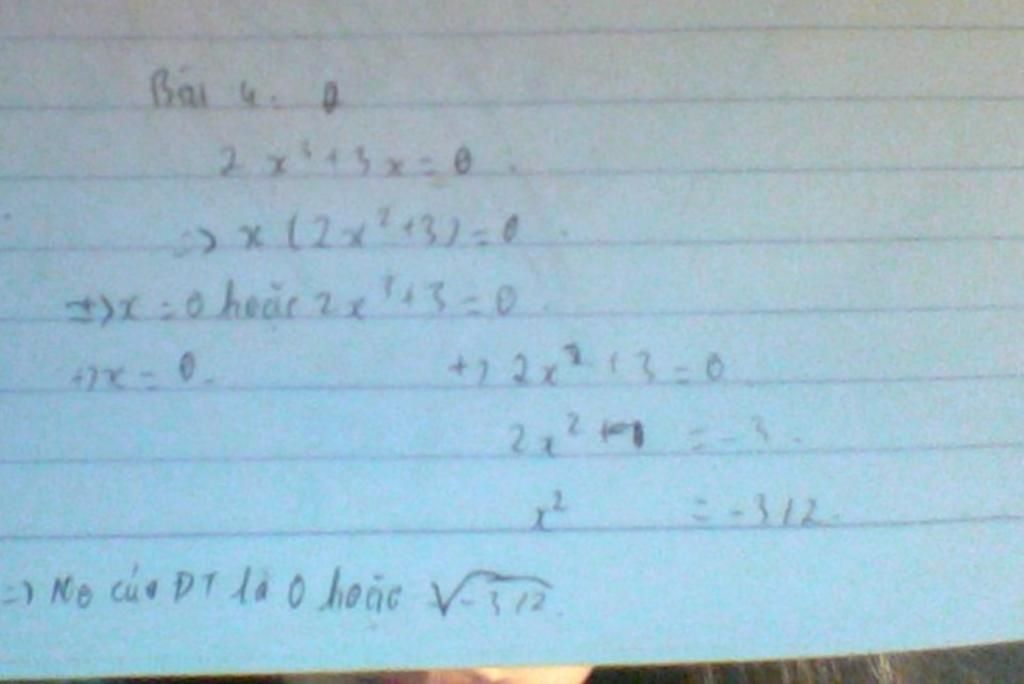 Bài 4: 0
2 x³ + 3x = 0.
=> x (2x² + 3) = 0.
=> x = 0 hoặc 2x² + 3 = 0.
+) x = 0. +) 2x² + 3 = 0
2x² = -3.
x² = -3/2.
=> No của ĐT là 0 hoặc √-3/2.